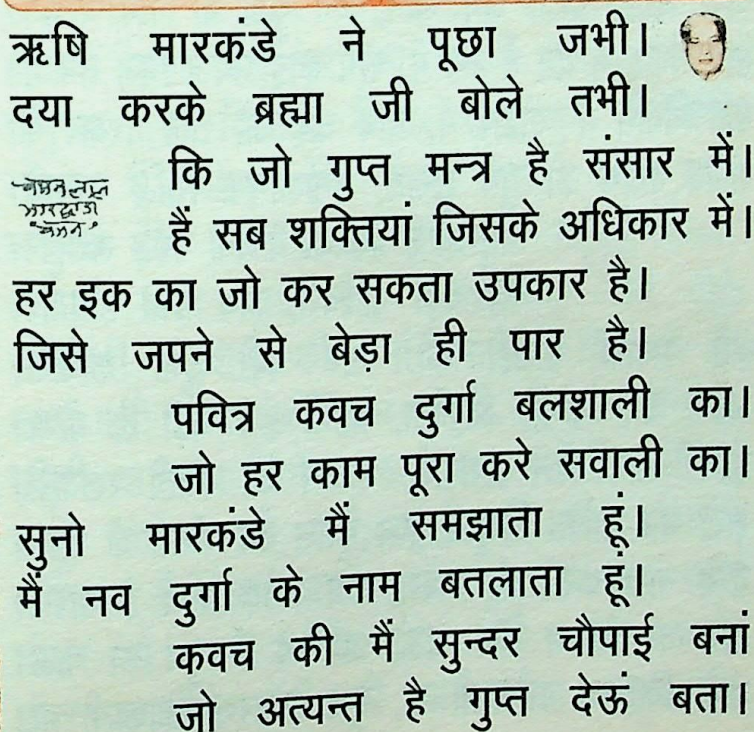 ऋषि मारकंडे ने पूछा जभी।
दया करके ब्रह्मा जी बोले तभी।
कि जो गुप्त मन्त्र है संसार में।
हैं सब शक्तियां जिसके अधिकार में।
हर इक का जो कर सकता उपकार है।
जिसे जपने से बेड़ा ही पार है।
पवित्र कवच दुर्गा बलशाली का।
जो हर काम पूरा करे सवाली का।
सुनो मारकंडे मैं समझाता हूं।
मैं नव दुर्गा के नाम बतलाता हूं।
कवच की मैं सुन्दर चौपाई बनां
जो अत्यन्त है गुप्त देऊं बता।